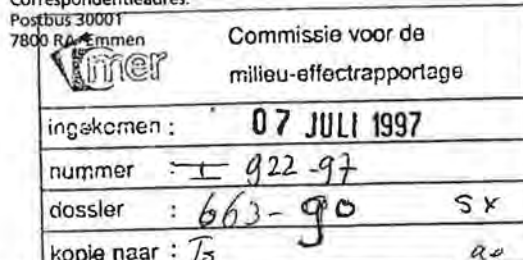 Correspondentieadres:
Postbus 30001
7800 RA Emmen
mer
Commissie voor de
milieu-effectrapportage
ingekomen : 07 JULI 1997
nummer : I 922-97
dossier : 663-90 SX
kopie naar : Ts